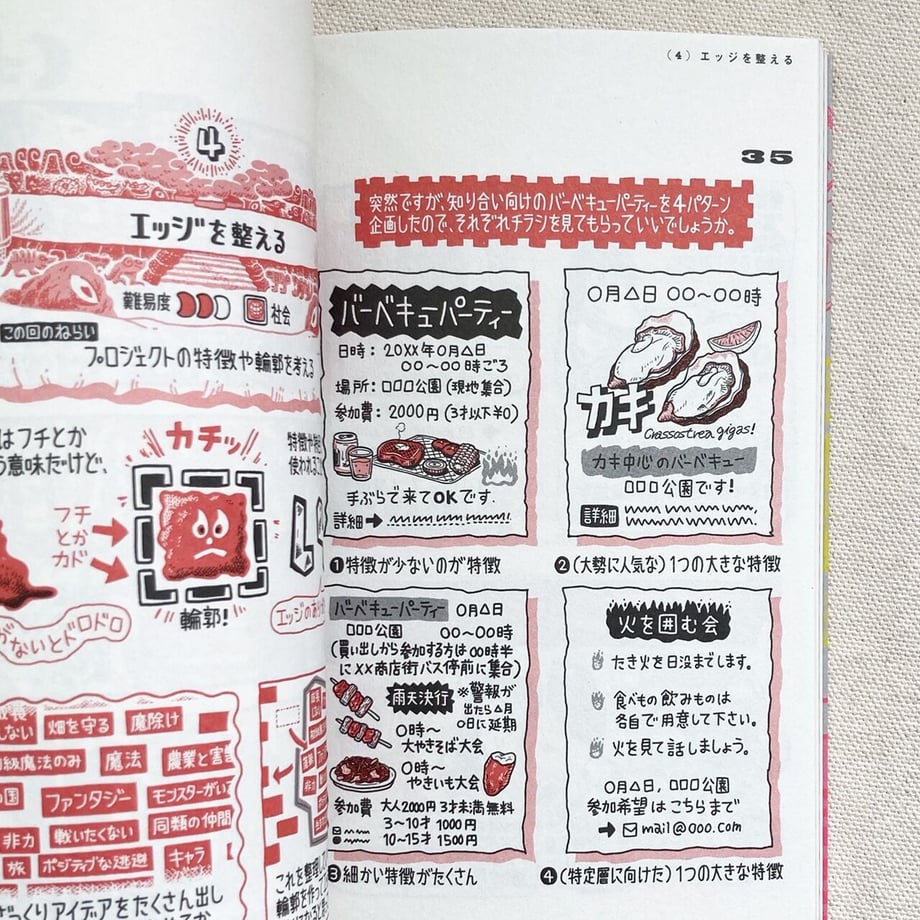 4
エッジを整える
難易度
社会
この回のねらい
プロジェクトの特徴や輪郭を考える
はフチとか
意味だけど、
カチッ
フチ
とか
カド
輪郭!
がないとドロドロ
ない
畑を守る
魔除け
級魔法のみ
魔法
農業と害
国
ファンタジー
モンスターがい
非力
戦いたくない
同類の仲間
旅
ポジティブな逃避
キャラ
っくりアイデアをたくさん出し
特徴や
使われる
エッジのあ
これを整理し
輪郭を作っ
(4) エッジを整える
35
突然ですが、知り合い向けのバーベキューパーティーを4パターン
企画したので、それぞれチラシを見てもらっていいでしょうか。
バーベキューパーティー
日時: 20XX年〇月△日
〇〇~〇〇時ごろ
場所: □□□公園(現地集合)
参加費: 2000円(3才以下¥0)
手ぶらで来てOKです.
詳細→
❶特徴が少ないのが特徴
〇月△日 〇〇~〇〇時
カキ
Crassostrea gigas!
カキ中心のバーベキュー
□□□公園です!
詳細
❷(大勢に人気な)1つの大きな特徴
バーベキューパーティー 〇月△日
□□□公園 〇〇~〇〇時
(買い出しから参加する方は〇〇時半
に××商店街バス停前に集合)
雨天決行
※警報が
出たら△月
〇日に延期
〇時~
大やきそば大会
〇時~
やきいも大会
参加費 大人2000円 3才未満無料
3~10才 1000円
10~15才 1500円
❸細かい特徴がたくさん
火を囲む会
たき火を日没までします。
食べもの飲みものは
各自で用意して下さい。
火を見て話しましょう。
〇月△日, □□□公園
参加希望はこちらまで
→ mail@ooo.com
❹(特定層に向けた)1つの大きな特徴